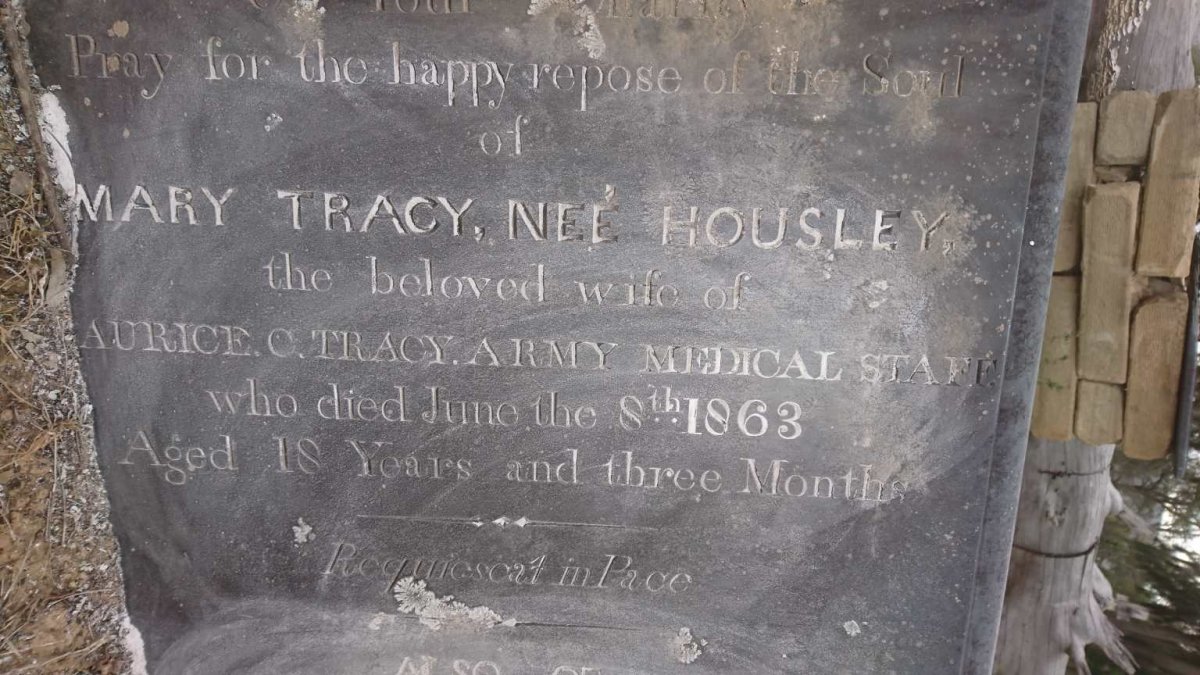 Your Charity
Pray for the happy repose of the Soul
of
MARY TRACY, NEÉ HOUSLEY,
the beloved wife of
AURICE. C. TRACY. ARMY MEDICAL STAFF
who died June the 8th 1863
Aged 18 Years and three Months
Requiescat in Pace
ALSO OF